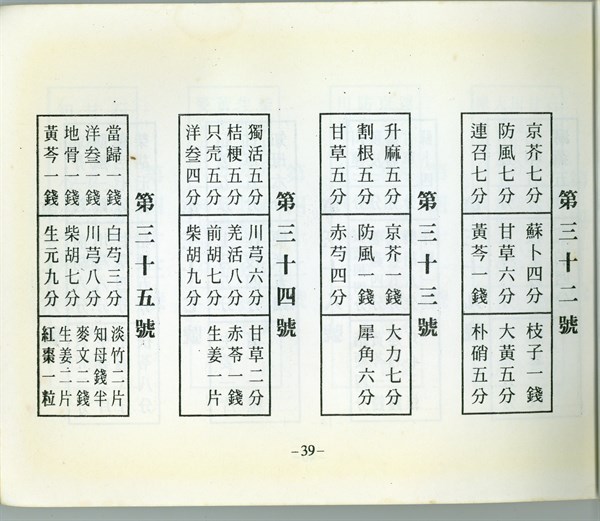 第三十二號
京芥七分
防風七分
連召七分
蘇卜四分
甘草六分
黃芩一錢
枝子一錢
大黃五分
朴硝五分
第三十三號
升麻五分
割根五分
甘草五分
京芥一錢
防風一錢
赤芍四分
大力七分
犀角六分
第三十四號
獨活五分
桔梗五分
只壳五分
洋叁四分
川芎六分
羌活八分
前胡七分
柴胡九分
甘草二分
赤苓一錢
生姜一片
第三十五號
當歸一錢
洋叁一錢
地骨一錢
黃芩一錢
白芍三分
川芎八分
柴胡七分
生元九分
淡竹二片
知母錢半
麥文二錢
生姜二片
紅棗一粒
-39-